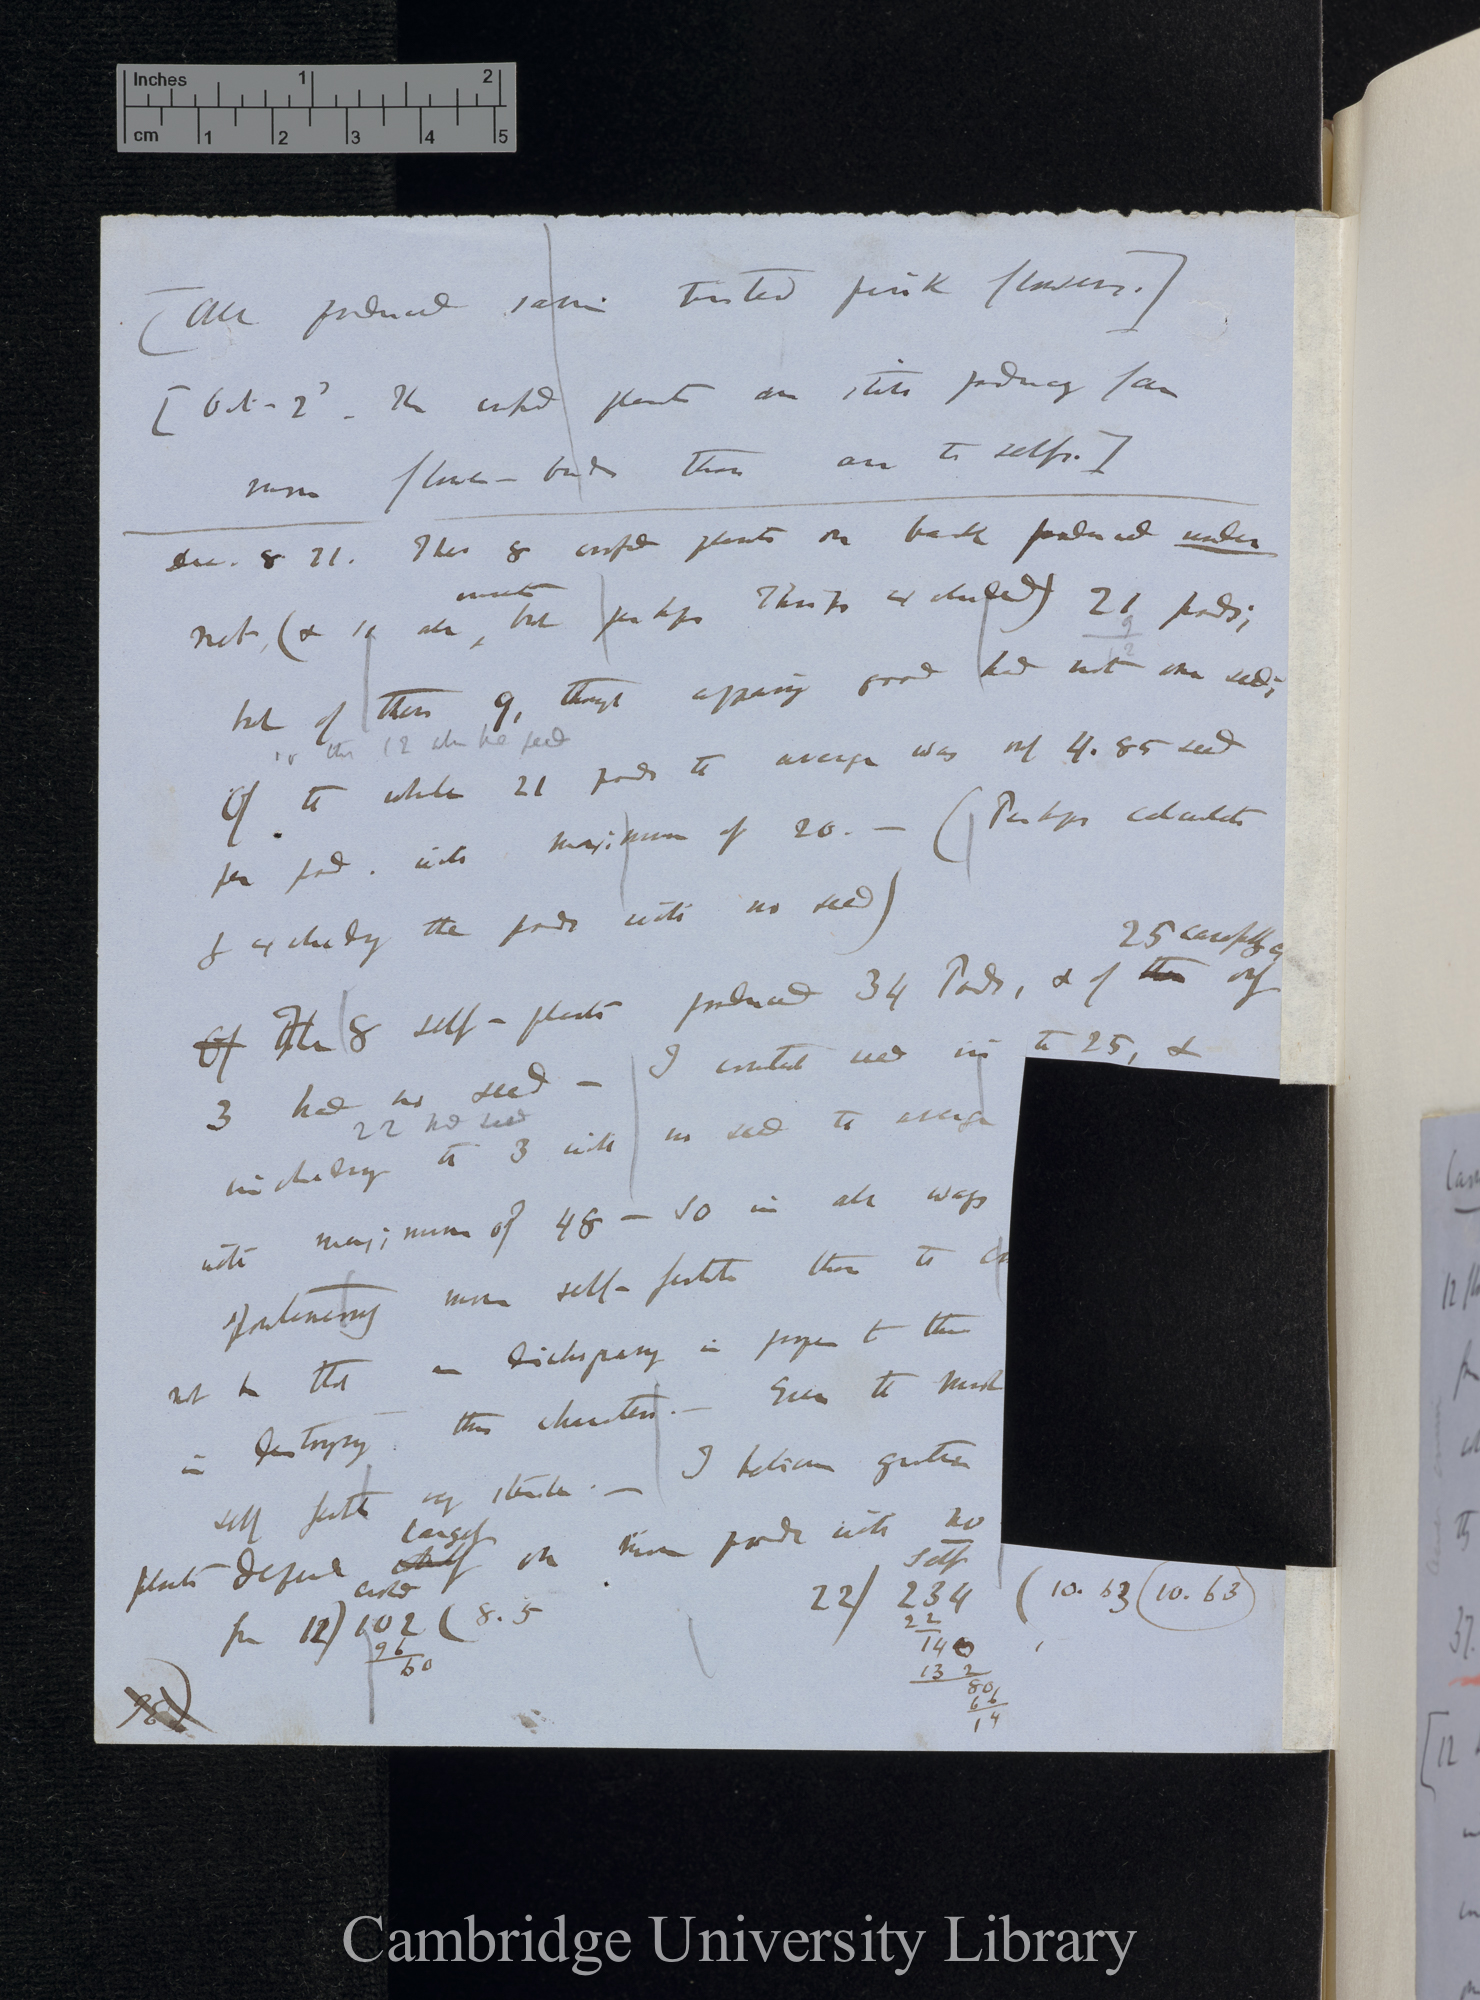 Inches 1 2
cm 1 2 3 4 5
[All produced same tinted pink flowers.]
[Oct. 2d. The crossed plants are still producing far
more flower-buds than are the selfs.]
Dec. 8 71. The 8 crossed plants on back produced under
net, (& so all insects, but perhaps Thrips excluded) 21 pods;
9
12
but of these 9, though appearing good had not one seed;
so the 12 alone had seed
Of the whole 21 pods the average was only 4.85 seed
per pod. with maximum of 20. — (Perhaps calculate
excluding the pods with no seed)
25 carefully
Of The 8 self-plants produced 34 Pods, & of these only
3 had no seed — I counted seed in the 25, &
22 had seed
including the 3 with no seed the average
with maximum of 48 — So in all ways
spontaneously more self-fertile than the
not be that an in proper to the
in destroying this character. — Even the most
self fertile very sterile. — I believe greater
plants depend largely on more pods with no
crossed
for 12) 102 (8.5
96
60
self
22) 234 (10.63 (10.63)
22
140
132
80
66
14
Cambridge University Library